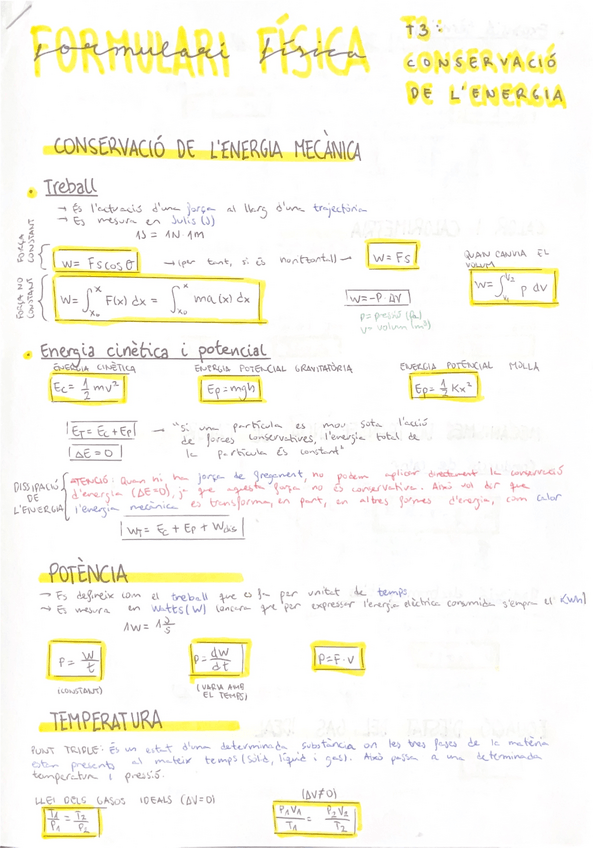 FORMULARI FÍSICA
formulari física
T3:
CONSERVACIÓ
DE L'ENERGIA
CONSERVACIÓ DE L'ENERGIA MECÀNICA
• Treball
→ És l'actuació d'una força al llarg d'una trajectòria
→ Es mesura en Julis (J)
1J = 1N · 1m
FORÇA CONSTANT
W = F s cos θ
→ (per tant, si és horitzontal) →
W = F s
QUAN CANVIA EL
VOLUM
W = ∫ᵥ₁^ᵥ₂ p dV
FORÇA NO CONSTANT
W = ∫ₓ₀^x F(x) dx = ∫ₓ₀^x ma(x) dx
W = -P · ΔV
P = pressió (Pa)
V = volum (m³)
• Energia cinètica i potencial
ENERGIA CINÈTICA
ENERGIA POTENCIAL GRAVITATÒRIA
ENERGIA POTENCIAL MOLLA
Ec = 1/2 mv²
Ep = mgh
Ep = 1/2 Kx²
ET = Ec + Ep
ΔE = 0
→ "Si una partícula es mou sota l'acció
de forces conservatives, l'energia total de
la partícula és constant"
DISSIPACIÓ
DE
L'ENERGIA
ATENCIÓ: Quan hi ha força de fregament, no podem aplicar directament la conservació
d'energia (ΔE=0), ja que aquesta força no és conservativa. Això vol dir que
l'energia mecànica es transforma, en part, en altres formes d'energia, com calor
WT = Ec + Ep + Wdis
POTÈNCIA
→ Es defineix com el treball que es fa per unitat de temps
→ Es mesura en Watts (W) (encara que per expressar l'energia elèctrica consumida s'empra el KWh)
1W = 1 J/s
P = W/t
P = dW/dt
P = F · v
(CONSTANT)
(VARIA AMB
EL TEMPS)
TEMPERATURA
PUNT TRIPLE: És un estat d'una determinada substància on les tres fases de la matèria
estan presents al mateix temps (sòlid, líquid i gas). Això passa a una determinada
temperatura i pressió.
LLEI DELS GASOS IDEALS (ΔV=0)
(ΔV≠0)
T₁/P₁ = T₂/P₂
P₁V₁/T₁ = P₂V₂/T₂